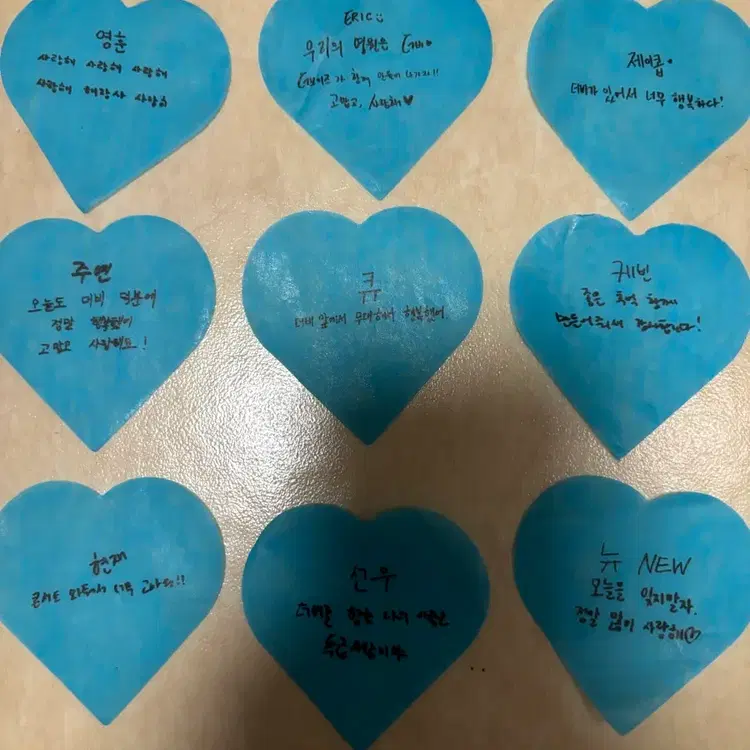 영훈
사랑해 사랑해 사랑해
사랑해 해랑사 사랑해
ERIC
우리의 영원은 더비
더보이즈가 함께 만들어 나가자!!
고맙고, 사랑해♥
제이콥
더비가 있어서 너무 행복하다!
주연
오늘도 더비 덕분에
정말 행복했어
고맙고 사랑해요!
큐
더비 앞에서 무대해서 행복했어.
케빈
좋은 추억 함께
만들어줘서 감사합니다!
현재
콘서트 와줘서 너무 고마워!!
선우
더비랑 함께
뉴 NEW
오늘을 잊지말자.
정말 많이 사랑해♡